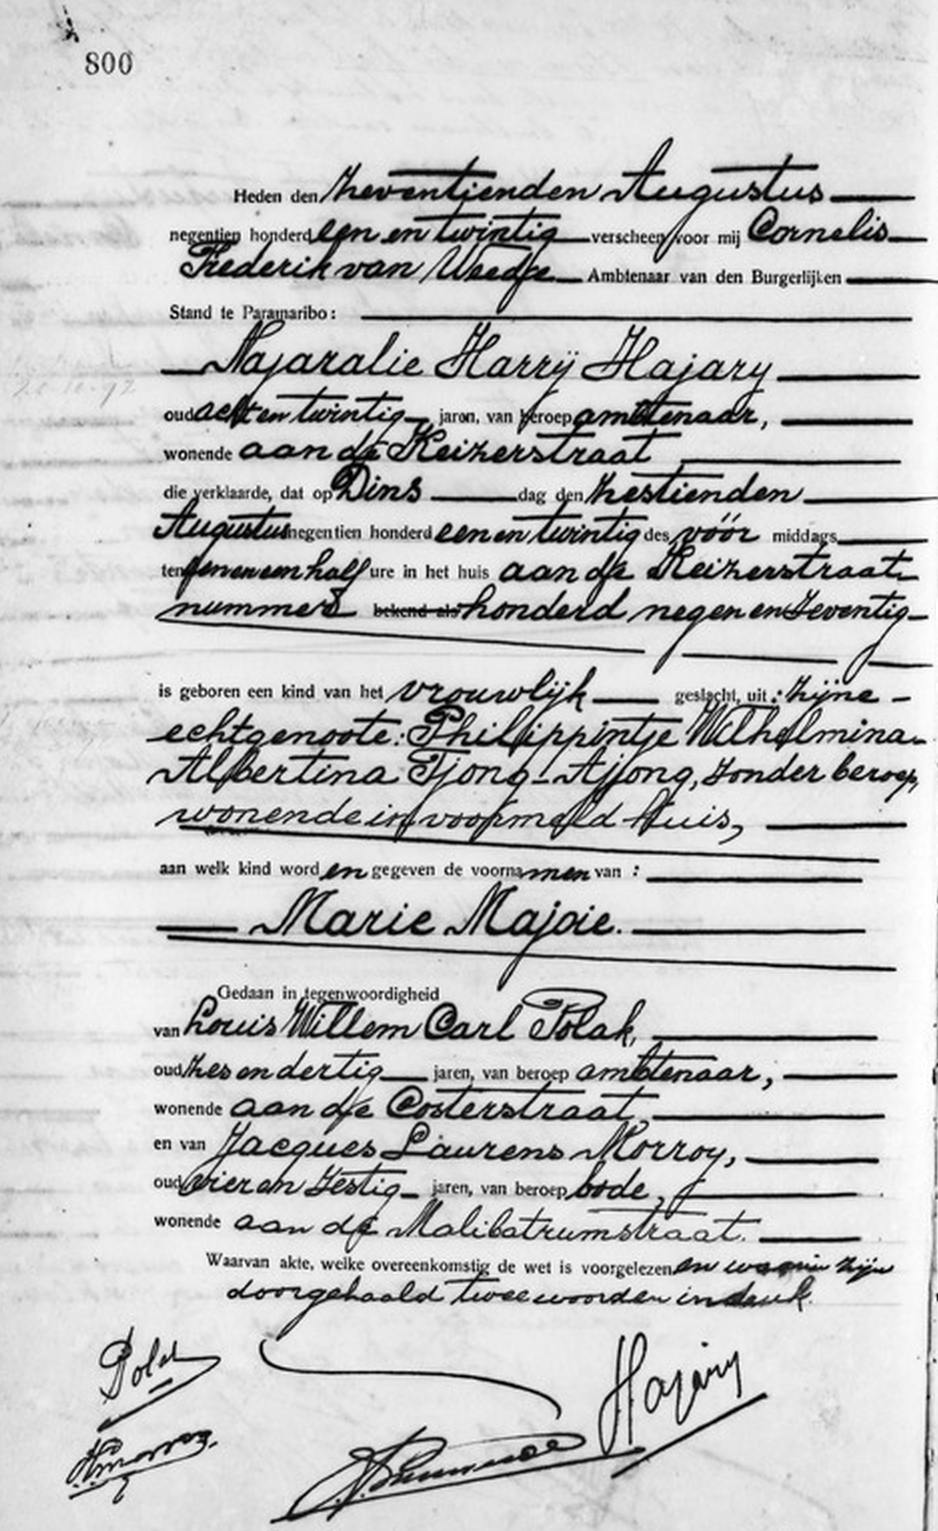 800
Heden den zeventienden Augustus
negentien honderd een en twintig verscheen voor mij Cornelis
Frederik van Ambtenaar van den Burgerlijken
Stand te Paramaribo:
Najaralie Harrÿ Hajary
oud acht en twintig jaren, van beroep ambtenaar,
wonende aan de Keizerstraat
die verklaarde, dat op Dins dag den zestienden
Augustus negentien honderd een en twintig des vóór middags
ten een half ure in het huis aan de Keizerstraat
nummer bekend als honderd negen en zeventig
is geboren een kind van het vrouwlijk geslacht, uit: zijne
echtgenoote: Philippintje Wilhelmina
Albertina Tjong-Ajong, zonder beroep,
wonende in voormeld huis,
aan welk kind worden gegeven de voornamen van:
Marie Majoie.
Gedaan in tegenwoordigheid
van Louis Willem Carl Polak,
oud zes en dertig jaren, van beroep ambtenaar,
wonende aan de Costerstraat
en van Jacques Laurens Morroy,
oud vier en zestig jaren, van beroep bode,
wonende aan de Malibatrumstraat.
Waarvan akte, welke overeenkomstig de wet is voorgelezen en waarin zijn
doorgehaald twee woorden in druk.
Polak
Hajary